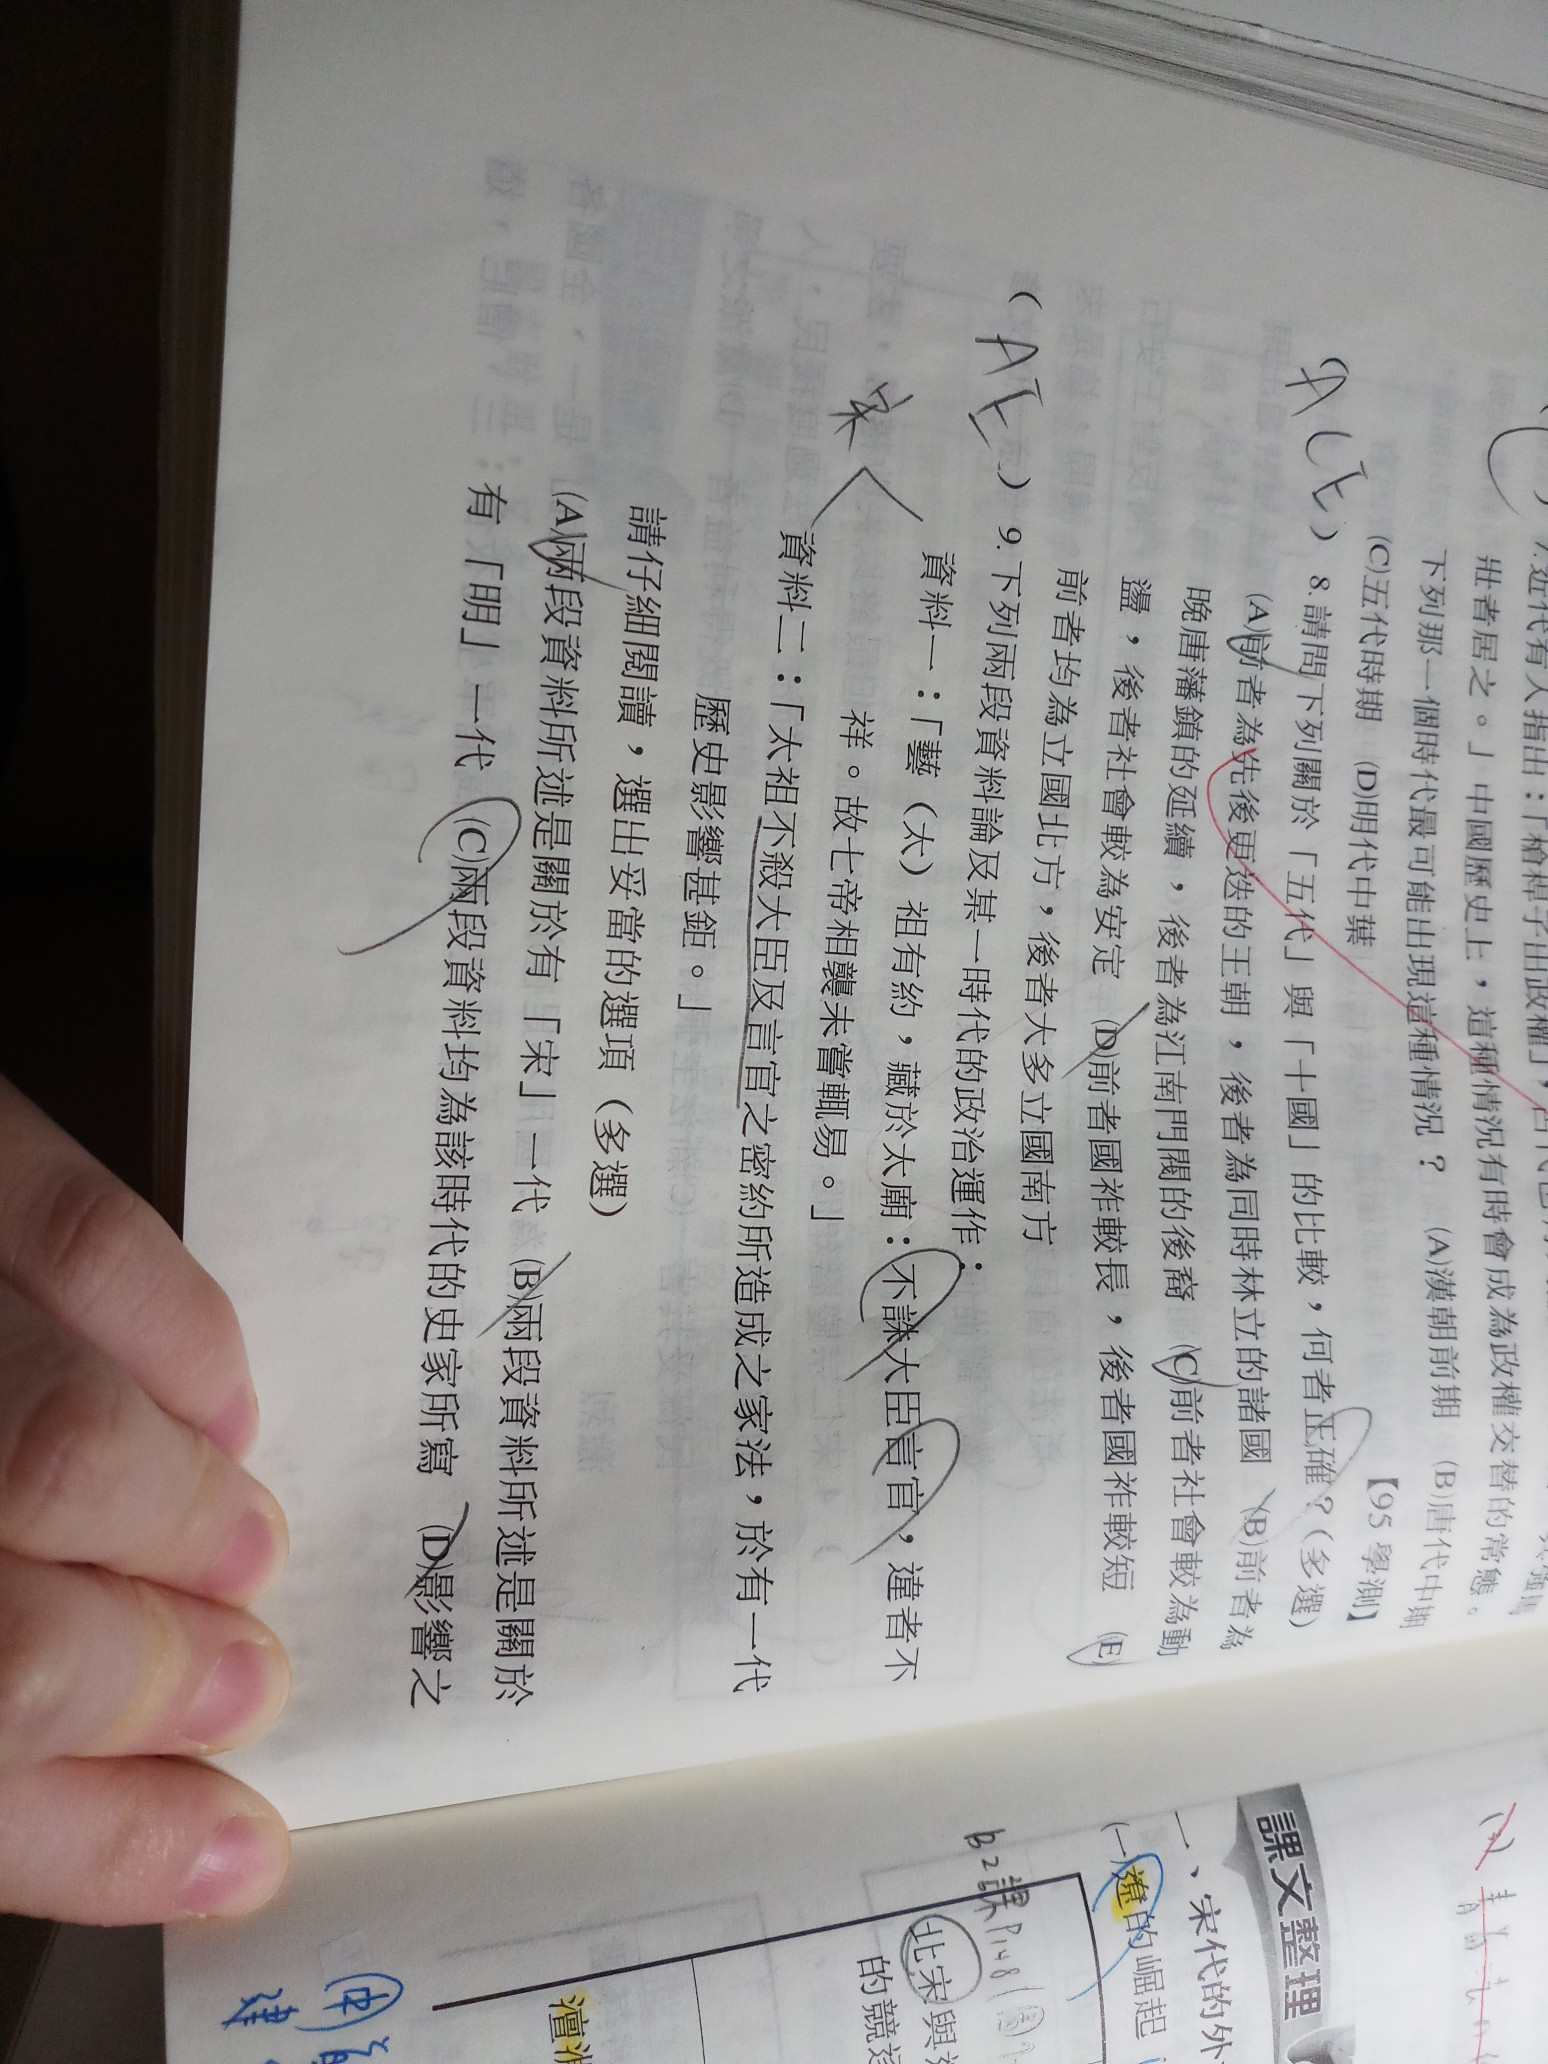 7.近代有人指出：「槍桿子出政權」，
壯者居之。」中國歷史上，這種情況有時會成為政權交替的常態。
下列那一個時代最可能出現這種情況？ (A)漢朝前期 (B)唐代中期
(C)五代時期 (D)明代中葉 【95 學測】
(ACE) 8.請問下列關於「五代」與「十國」的比較，何者正確？(多選)
(A)前者為先後更迭的王朝，後者為同時林立的諸國 (B)前者為
晚唐藩鎮的延續，後者為江南門閥的後裔 (C)前者社會較為動
盪，後者社會較為安定 (D)前者國祚較長，後者國祚較短 (E)
前者均為立國北方，後者大多立國南方
(AE) 9.下列兩段資料論及某一時代的政治運作：
宋
資料一：「藝（太）祖有約，藏於太廟：不誅大臣言官，違者不
祥。故七帝相襲未嘗輒易。」
資料二：「太祖不殺大臣及言官之密約所造成之家法，於有一代
歷史影響甚鉅。」
請仔細閱讀，選出妥當的選項（多選）
(A)兩段資料所述是關於有「宋」一代 (B)兩段資料所述是關於
有「明」一代 (C)兩段資料均為該時代的史家所寫 (D)影響之
課文整理
一、宋代的外
(一)遼的崛起
B2課P148
北宋與
的競逐
澶淵